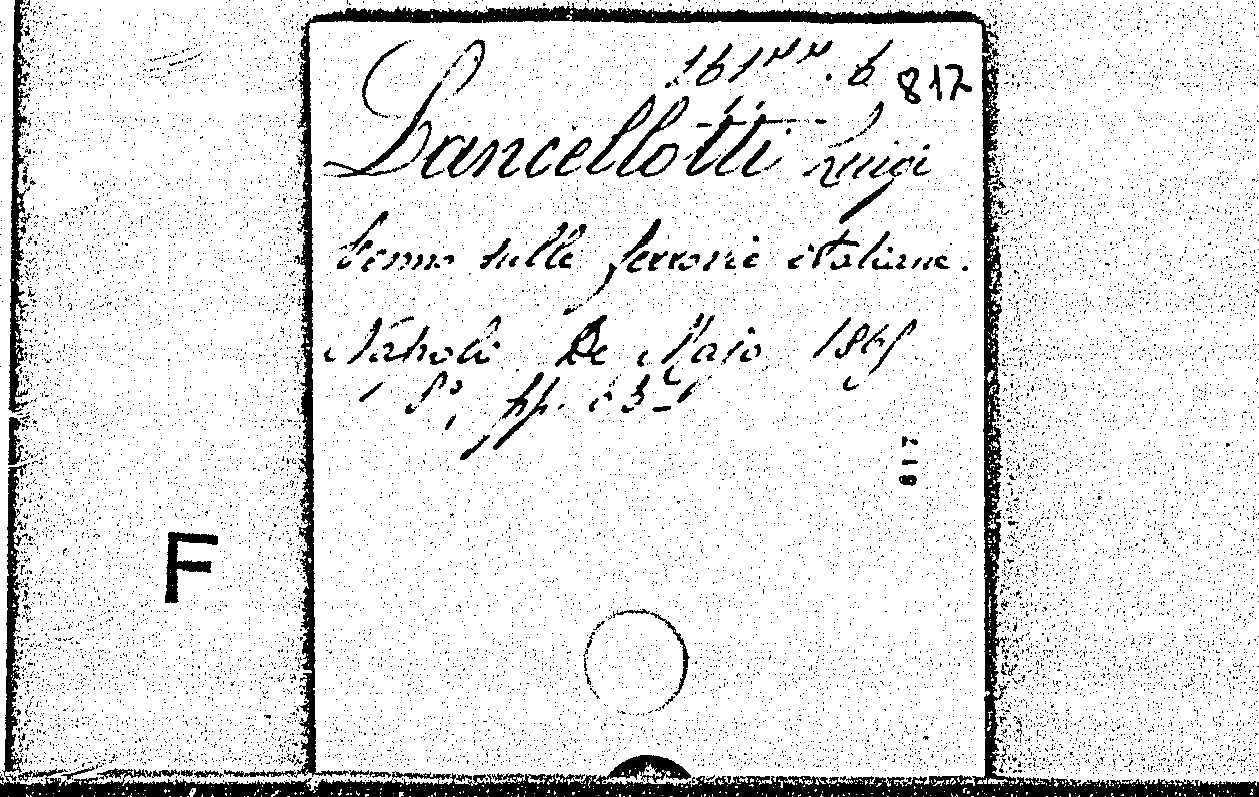 817
Lancellotti Luigi
Cenno sulle ferrovie italiane.
Napoli De Majo 1865
8°, pp. 63
817
F